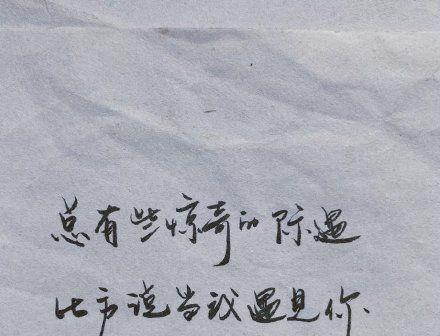 总有些惊奇的际遇
比方说当我遇见你